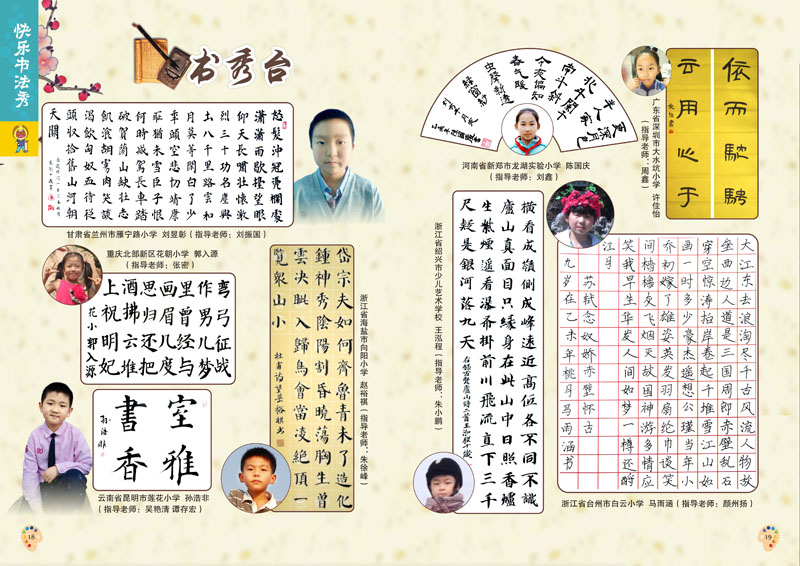 快乐书法秀
书秀台
怒髮沖冠憑欄處
瀟瀟雨歇擡望眼
仰天長嘯壯懷激
烈三十功名塵與
土八千里路雲和
月莫等閒白了少
年頭空悲切靖康
恥猶未雪臣子恨
何時滅駕長車踏
破賀蘭山缺壯志
飢飡胡虜肉笑談
渴飲匈奴血待從
頭收拾舊山河朝
天闕
甘肃省兰州市雁宁路小学 刘昱彰（指导老师：刘振国）
重庆北部新区花朝小学 郭入源
（指导老师：张密）
弯弓征战
作男儿梦
里曾经与
画眉几度
思归还把
酒拂云堆
上祝明妃
花小郭入源
室雅
書香
孙浩非
云南省昆明市莲花小学 孙浩非
（指导老师：吴艳清 谭存宏）
岱宗夫如何齊魯青未了造化
鍾神秀陰陽割昏曉蕩胸生曾
雲決眥入歸鳥會當凌絶頂一
覽衆山小
浙江省海盐市向阳小学 赵裕祺（指导老师：朱徐峰）
18
更深月色
半人家
北斗闌干
南斗斜
今夜偏知
春气暖
虫聲新透
綠窗紗
河南省新郑市龙湖实验小学 陈国庆
（指导老师：刘鑫）
依而馳騁
云用心于
广东省深圳市大水坑小学 许佳怡
（指导老师：周鑫）
橫看成嶺側成峰遠近高低各不同不識
廬山真面目只緣身在此山中日照香爐
生紫煙遙看瀑布掛前川飛流直下三千
尺疑是銀河落九天
浙江省绍兴市少儿艺术学校 王泓程（指导老师：朱小鹏）
大江东去浪淘尽千古风流人物故
垒西边人道是三国周郎赤壁乱石
穿空惊涛拍岸卷起千堆雪江山如
画一时多少豪杰遥想公瑾当年小
乔初嫁了雄姿英发羽扇纶巾谈笑
间樯橹灰飞烟灭故国神游多情应
笑我早生华发人间如梦一樽还酹
江月
苏轼念奴娇赤壁怀古
九岁在乙未年桃月马雨涵书
浙江省台州市白云小学 马雨涵（指导老师：颜州扬）
19